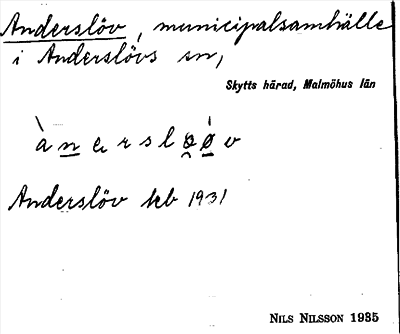 Anderslöv, municipalsamhälle
i Anderslövs sn,
Skytts härad, Malmöhus län
Anderslöv kb 1931
NILS NILSSON 1935